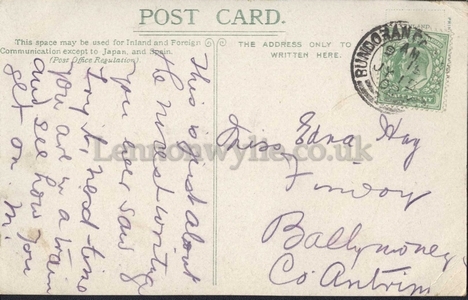 POST CARD.
This space may be used for Inland and Foreign
Communication except to Japan, and Spain.
(Post Office Regulation)
THE ADDRESS ONLY TO
WRITTEN HERE.
BUNDORAN
This is just about
the worst writing
you ever saw
Try it, next time
you are in a train
and see how you
get on
M.
Miss Edna Hay
Finvoy
Ballymoney
Co Antrim
Lennonwylie.co.uk